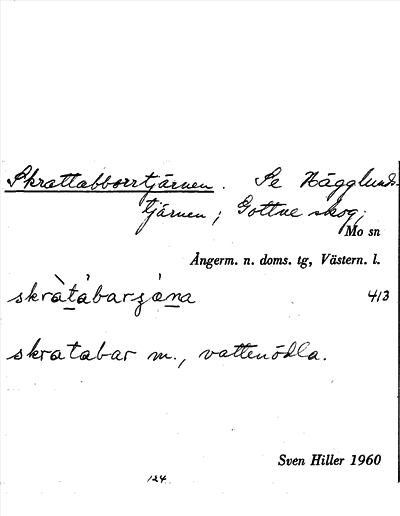 Skrattabborrtjärnen. Se Hägglunds-
tjärnen; Gottne skog;
Mo sn
Ångerm. n. doms. tg, Västern. l.
skràtábarzǻna 413
skratabar m., vattenödla.
Sven Hiller 1960
124